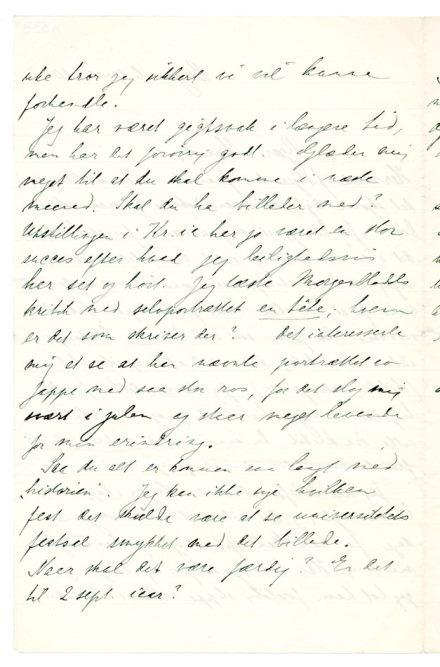 uke tror jeg sikkert vi vil kunne
forhandle.
Jeg har været gigtsvak i længere tid,
men har det forøvrig godt. Glæder mig
meget til at du skal komme i næste
maaned. Skal du ha billeder med?
Utstillingen i Kr.ia har jo været en stor
succes efter hvad jeg leilighedsvis
har set og hørt. Jeg læste Morgenbladets
kritik med selvportrættet en tête; hvem
er det som skriver der? Det interesserte
mig at se at han nævnte portrættet av
Jappe med saa stor ros, for det slog mig
svært i julen og staar meget levende
for min erindring.
Saa du alt er kommen saa langt med
"historien". Jeg kan ikke si hvilken
fest det skulde være at se universitetets
festsal smykket med det billede.
Naar skal det være færdig? Er det
til 2 sept. iaar?